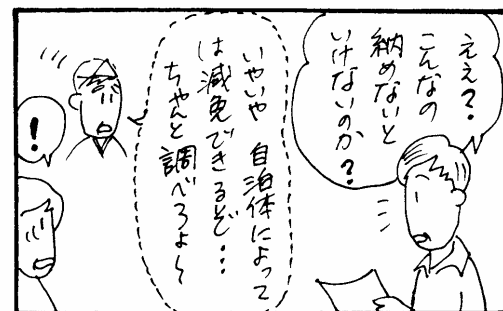 ええ?
こんなの
納めないと
いけないのか?
いやいや 自治体によって
は減免できるぞ…
ちゃんと調べろよ~
!